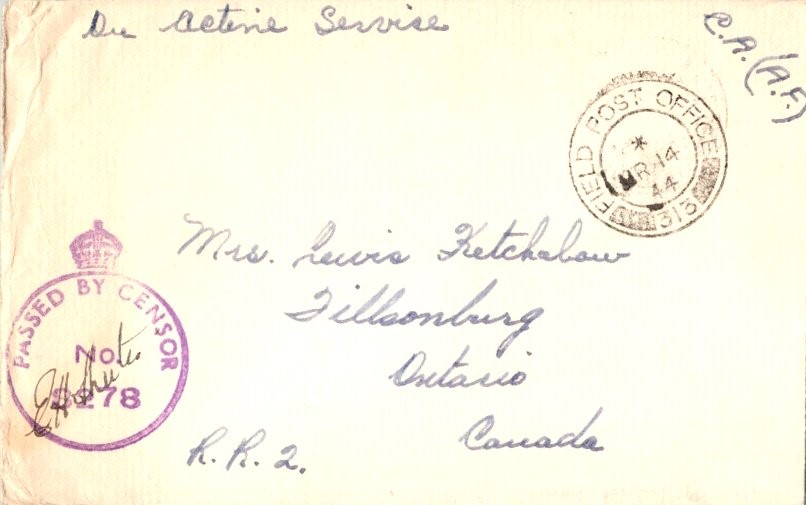 On Active Service
C.A.(A.F.)
FIELD POST OFFICE
* MR 14
44
313
Mrs. Lewis Ketchabaw
Tillsonburg
Ontario
Canada
R.R.2.
PASSED BY CENSOR
No.